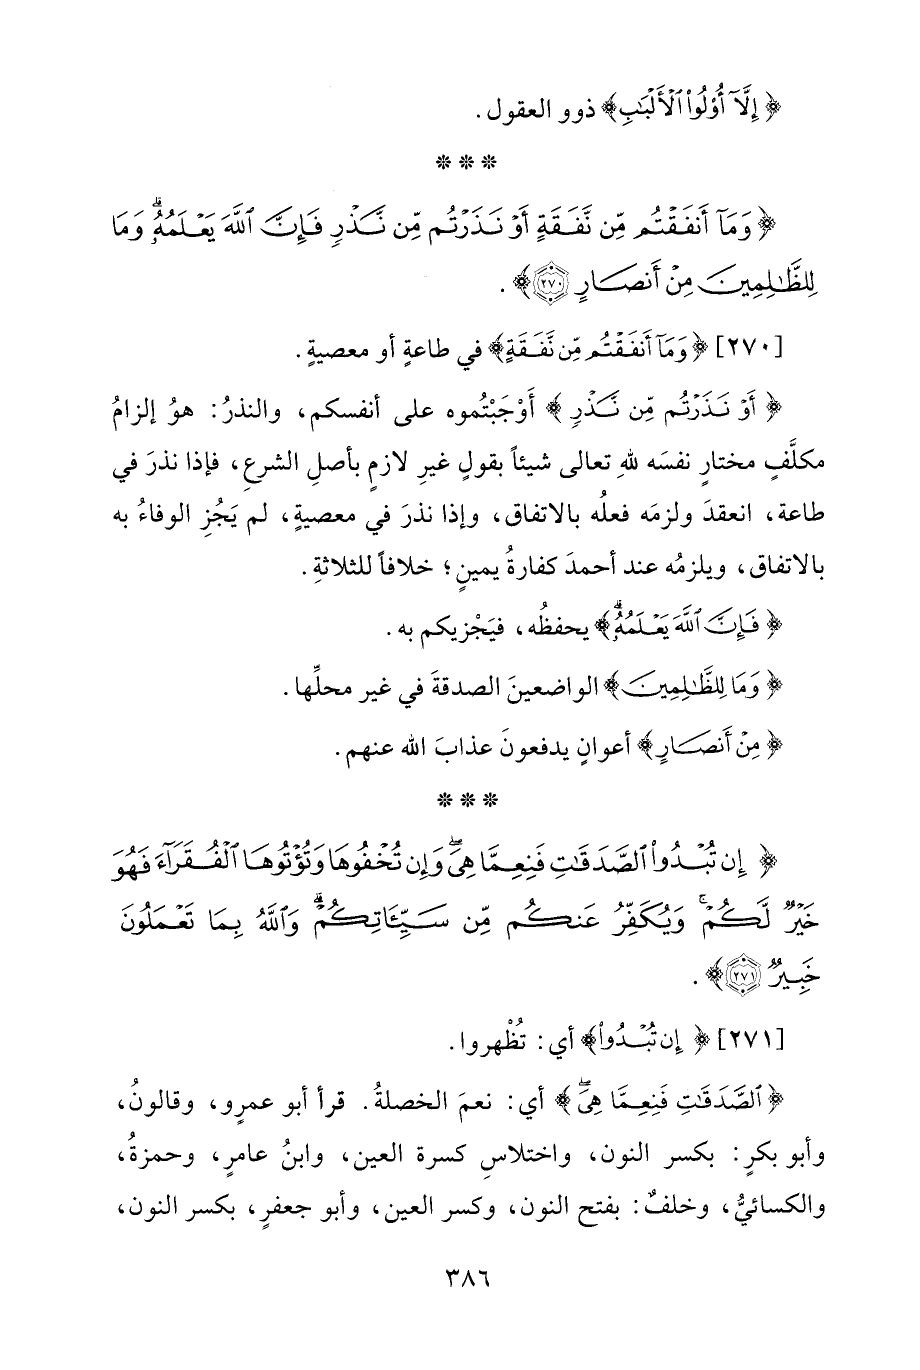 ﴿إِلَّآ أُوْلُواْ ٱلْأَلْبَٰبِ﴾ ذوو العقول.
* * *
﴿وَمَآ أَنفَقْتُم مِّن نَّفَقَةٍ أَوْ نَذَرْتُم مِّن نَّذْرٍ فَإِنَّ ٱللَّهَ يَعْلَمُهُۥۗ وَمَا
لِلظَّٰلِمِينَ مِنْ أَنصَارٍ ٢٧٠﴾.
[٢٧٠] ﴿وَمَآ أَنفَقْتُم مِّن نَّفَقَةٍ﴾ في طاعةٍ أو معصيةٍ.
﴿أَوْ نَذَرْتُم مِّن نَّذْرٍ﴾ أَوْجَبْتُموه على أنفسكم، والنذرُ: هوُ إلزامُ
مكلَّفٍ مختارٍ نفسَه للهِ تعالى شيئاً بقولٍ غيرِ لازمٍ بأصلِ الشرعِ، فإذا نذرَ في
طاعة، انعقدَ ولزمَه فعلُه بالاتفاق، وإذا نذرَ في معصيةٍ، لم يَجُزِ الوفاءُ به
بالاتفاق، ويلزمُه عند أحمدَ كفارةُ يمينٍ؛ خلافاً للثلاثةِ.
﴿فَإِنَّ ٱللَّهَ يَعْلَمُهُۥۗ﴾ يحفظُه، فيَجْزيكم به.
﴿وَمَا لِلظَّٰلِمِينَ﴾ الواضعينَ الصدقةَ في غير محلِّها.
﴿مِنْ أَنصَارٍ﴾ أعوانٍ يدفعونَ عذابَ الله عنهم.
* * *
﴿إِن تُبْدُواْ ٱلصَّدَقَٰتِ فَنِعِمَّا هِىَۖ وَإِن تُخْفُوهَا وَتُؤْتُوهَا ٱلْفُقَرَآءَ فَهُوَ
خَيْرٌ لَّكُمْۚ وَيُكَفِّرُ عَنكُم مِّن سَيِّـَٔاتِكُمْۗ وَٱللَّهُ بِمَا تَعْمَلُونَ
خَبِيرٌ ٢٧١﴾.
[٢٧١] ﴿إِن تُبْدُواْ﴾ أي: تُظْهروا.
﴿ٱلصَّدَقَٰتِ فَنِعِمَّا هِىَۖ﴾ أي: نعمَ الخصلةُ. قرأ أبو عمرٍو، وقالونُ،
وأبو بكرٍ: بكسر النون، واختلاسِ كسرة العين، وابنُ عامرٍ، وحمزةُ،
والكسائيُّ، وخلفٌ: بفتح النون، وكسر العين، وأبو جعفرٍ، بكسر النون،
٣٨٦